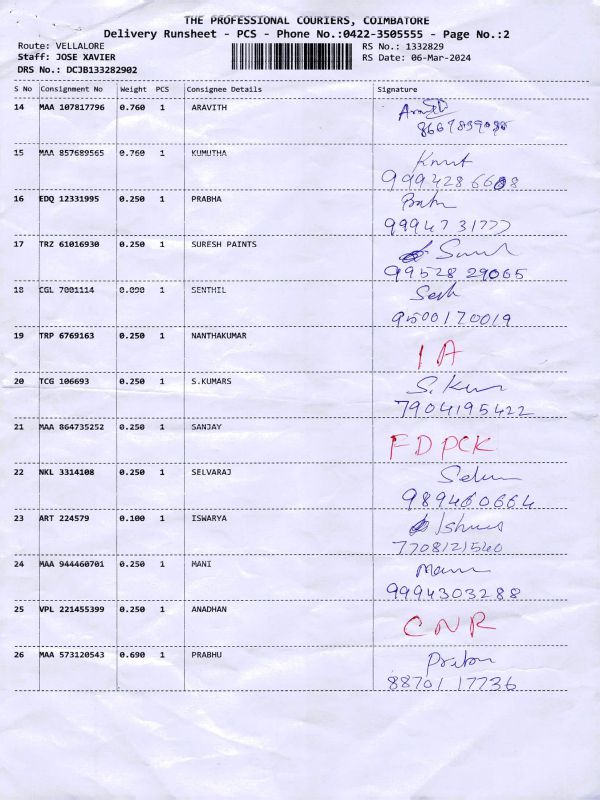 THE PROFESSIONAL COURIERS, COIMBATORE
Delivery Runsheet - PCS - Phone No.:0422-3505555 - Page No.:2
Route: VELLALORE RS No.: 1332829
Staff: JOSE XAVIER RS Date: 06-Mar-2024
DRS No.: DCJB133282902
S No Consignment No Weight PCS Consignee Details Signature
14 MAA 107817796 0.760 1 ARAVITH
15 MAA 857689565 0.760 1 KUMUTHA
16 EDQ 12331995 0.250 1 PRABHA
9994731777
17 TRZ 61016930 0.250 1 SURESH PAINTS
9952829065
18 CGL 7001114 0.090 1 SENTHIL
9500170019
19 TRP 6769163 0.250 1 NANTHAKUMAR
IA
20 TCG 106693 0.250 1 S.KUMARS
S. Kum
7904195422
21 MAA 864735252 0.250 1 SANJAY
FDPCK
22 NKL 3314108 0.250 1 SELVARAJ
989460664
23 ART 224579 0.100 1 ISWARYA
7708121540
24 MAA 944460701 0.250 1 MANI
9994303288
25 VPL 221455399 0.250 1 ANADHAN
CNR
26 MAA 573120543 0.690 1 PRABHU
8870117736